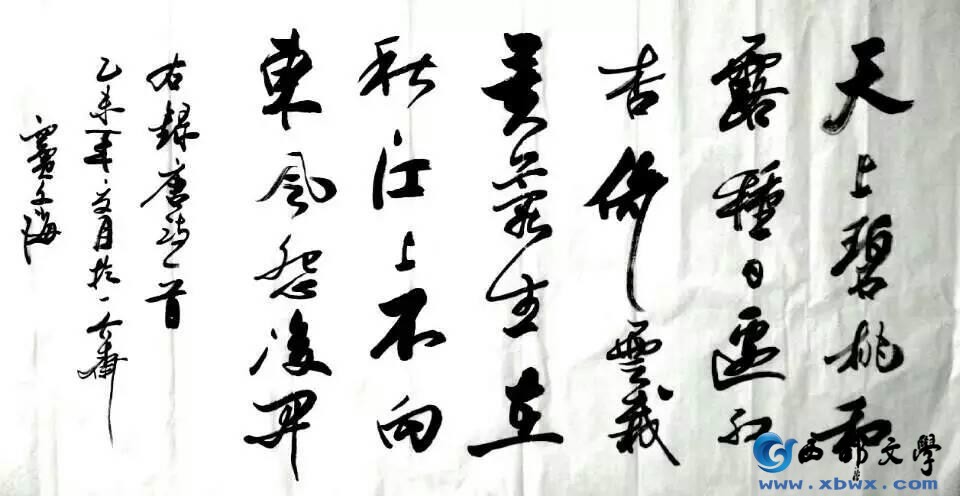 天上碧桃和
露種日邊紅
杏倚雲栽
芙蓉生在
秋江上不向
東風怨開
右録唐詩一首
乙未年月於一齋
竇文海
西部文學
www.xbwx.com